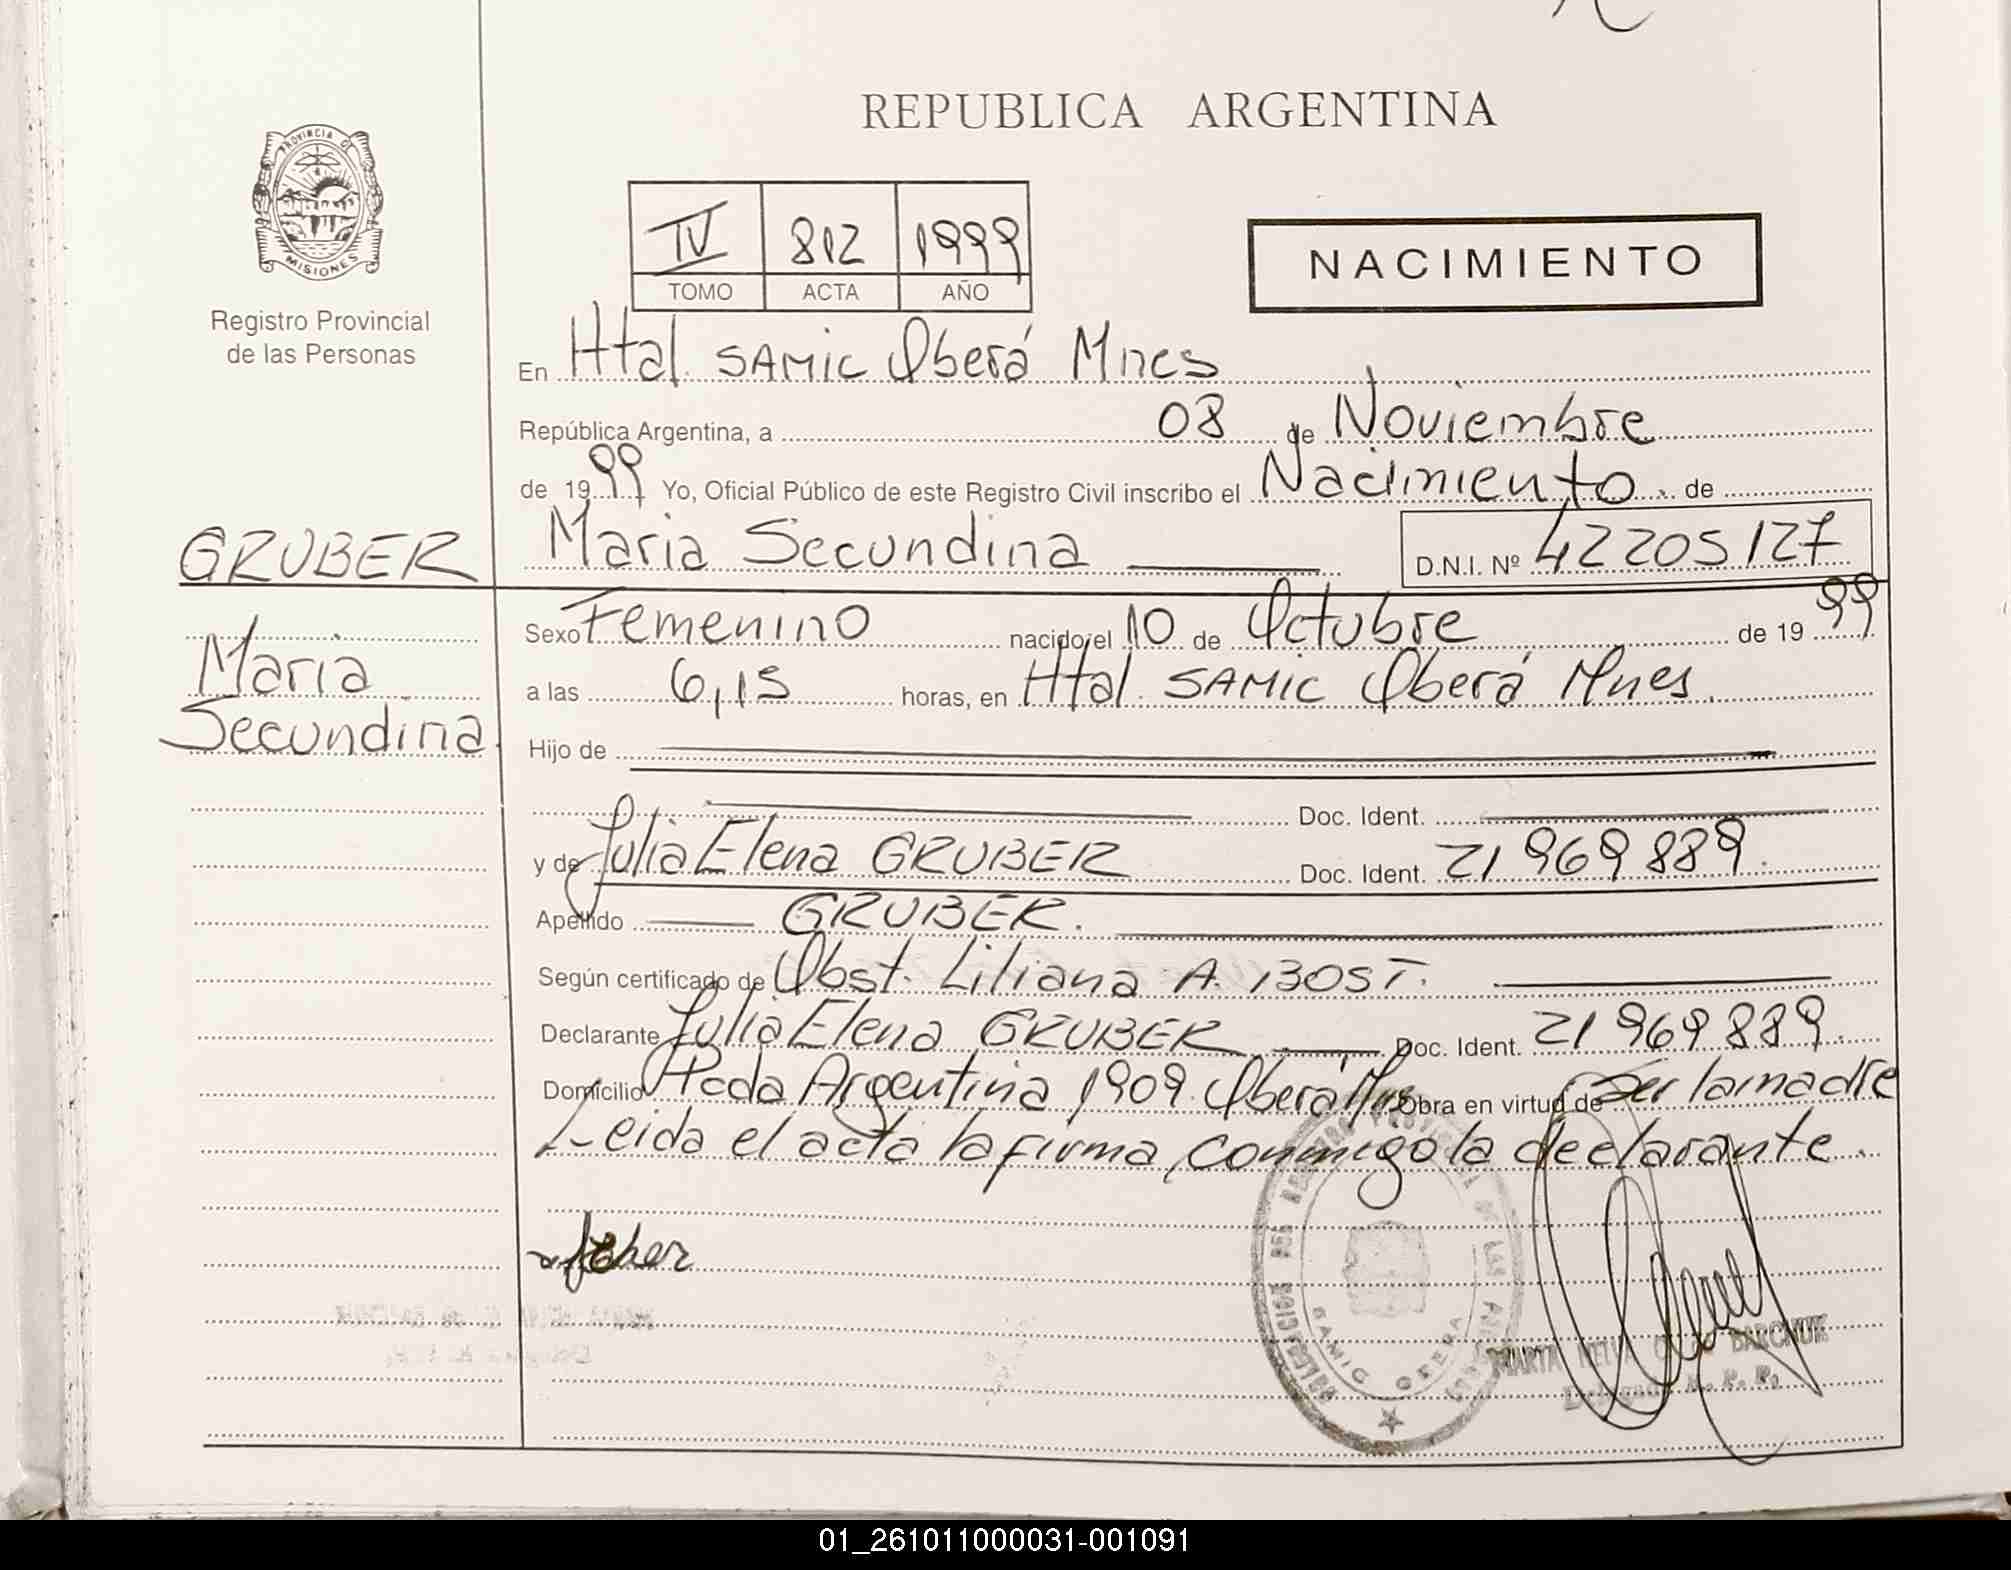 REPUBLICA ARGENTINA
PROVINCIA DE
MISIONES
Registro Provincial
de las Personas
IV 812 1999
TOMO ACTA AÑO
NACIMIENTO
En Htal. SAMIC Oberá Mnes
República Argentina, a 08 de Noviembre
de 1999 Yo, Oficial Público de este Registro Civil inscribo el Nacimiento de
GRUBER Maria Secundina D.N.I. Nº 42205127
Maria
Secundina
Sexo Femenino nacido el 10 de Octubre de 1999
a las 6,15 horas, en Htal. SAMIC Oberá Mnes.
Hijo de
Doc. Ident.
y de Julia Elena GRUBER Doc. Ident. 21969889.
Apellido GRUBER.
Según certificado de Obst. Liliana A. BOST.
Declarante Julia Elena GRUBER Doc. Ident. 21969889.
Domicilio Pcda Argentina 1909. Oberá Mnes Obra en virtud de ser la madre
Leida el acta la firma conmigo la declarante.
DELEGACION DEL REGISTRO PROVINCIAL DE LAS
SAMIC OBERA
MARTA BARCHUK
R. P. P.
01_261011000031-001091